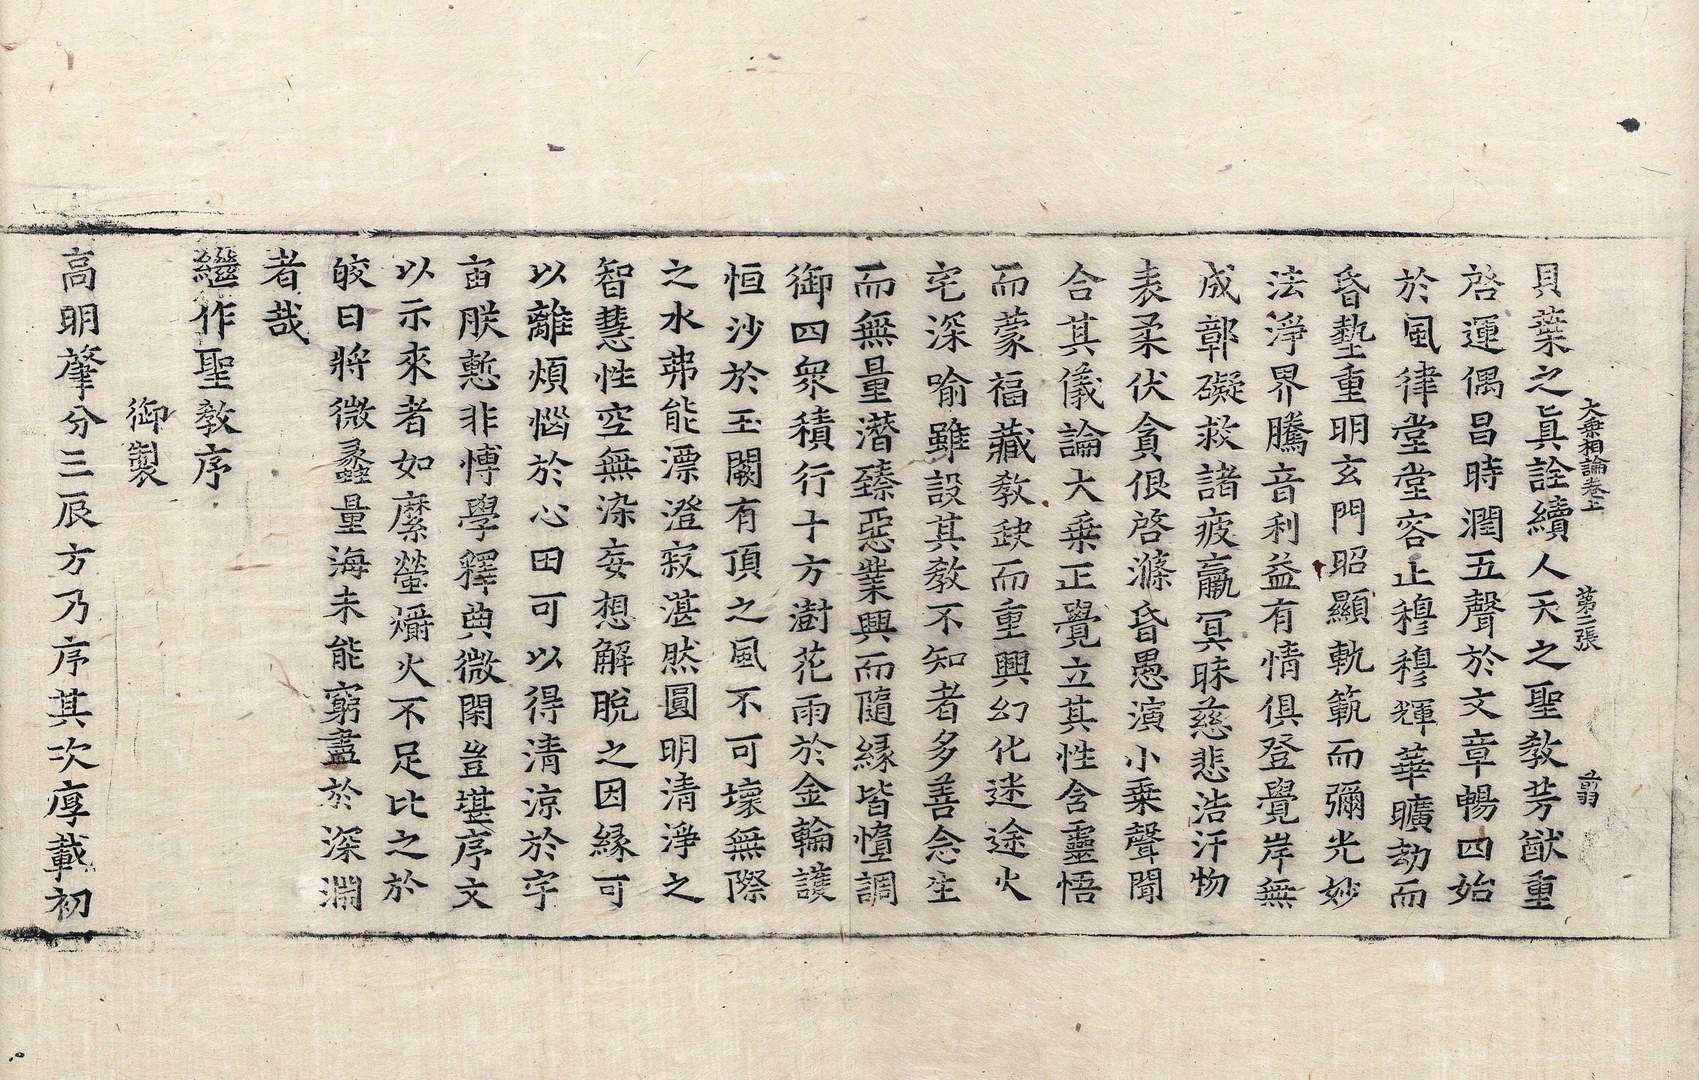 大乘相論卷上　第二張　翦
貝葉之真詮續人天之聖教芳猷重
啓運偶昌時潤五聲於文章暢四始
於風律堂堂容止穆穆輝華曠劫而
昏墊重明玄門昭顯軌範而彌光妙
法淨界騰音利益有情俱登覺岸無
成鄣礙救諸疲羸冥昧慈悲浩汗物
表柔伏貪佷啓滌昏愚演小乘聲聞
合其儀論大乘正覺立其性含靈悟
而蒙福藏教缺而重興幻化迷途火
宅深喻雖設其教不知者多善念生
而無量潛臻惡業興而隨緣皆墮調
御四衆積行十方澍花雨於金輪護
恒沙於玉闕有頂之風不可壞無際
之水弗能漂澄寂湛然圓明清淨之
智慧性空無染妄想解脫之因緣可
以離煩惱於心田可以得清涼於宇
宙朕慙非博學釋典微閑豈堪序文
以示來者如縻螢爝火不足比之於
皎日將微蠡量海未能窮盡於深淵
者哉
繼作聖教序
御製
高明肇分三辰方乃序其次厚載初